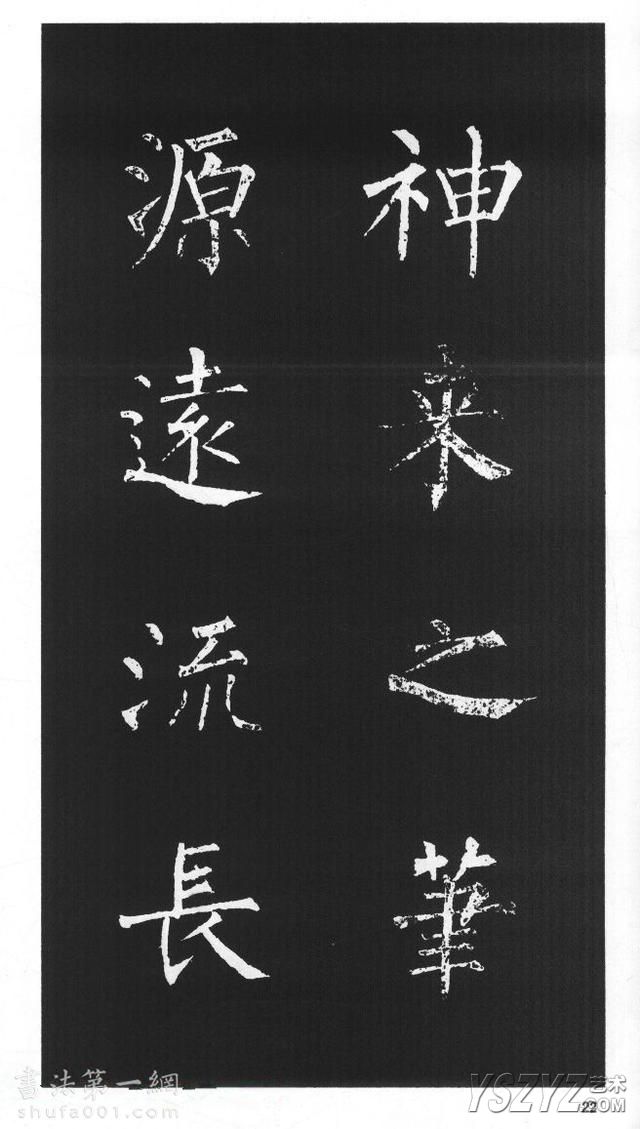 神来之筆
源遠流長
書法第一網
shufa001.com
YSZYZ艺术
.COM
22